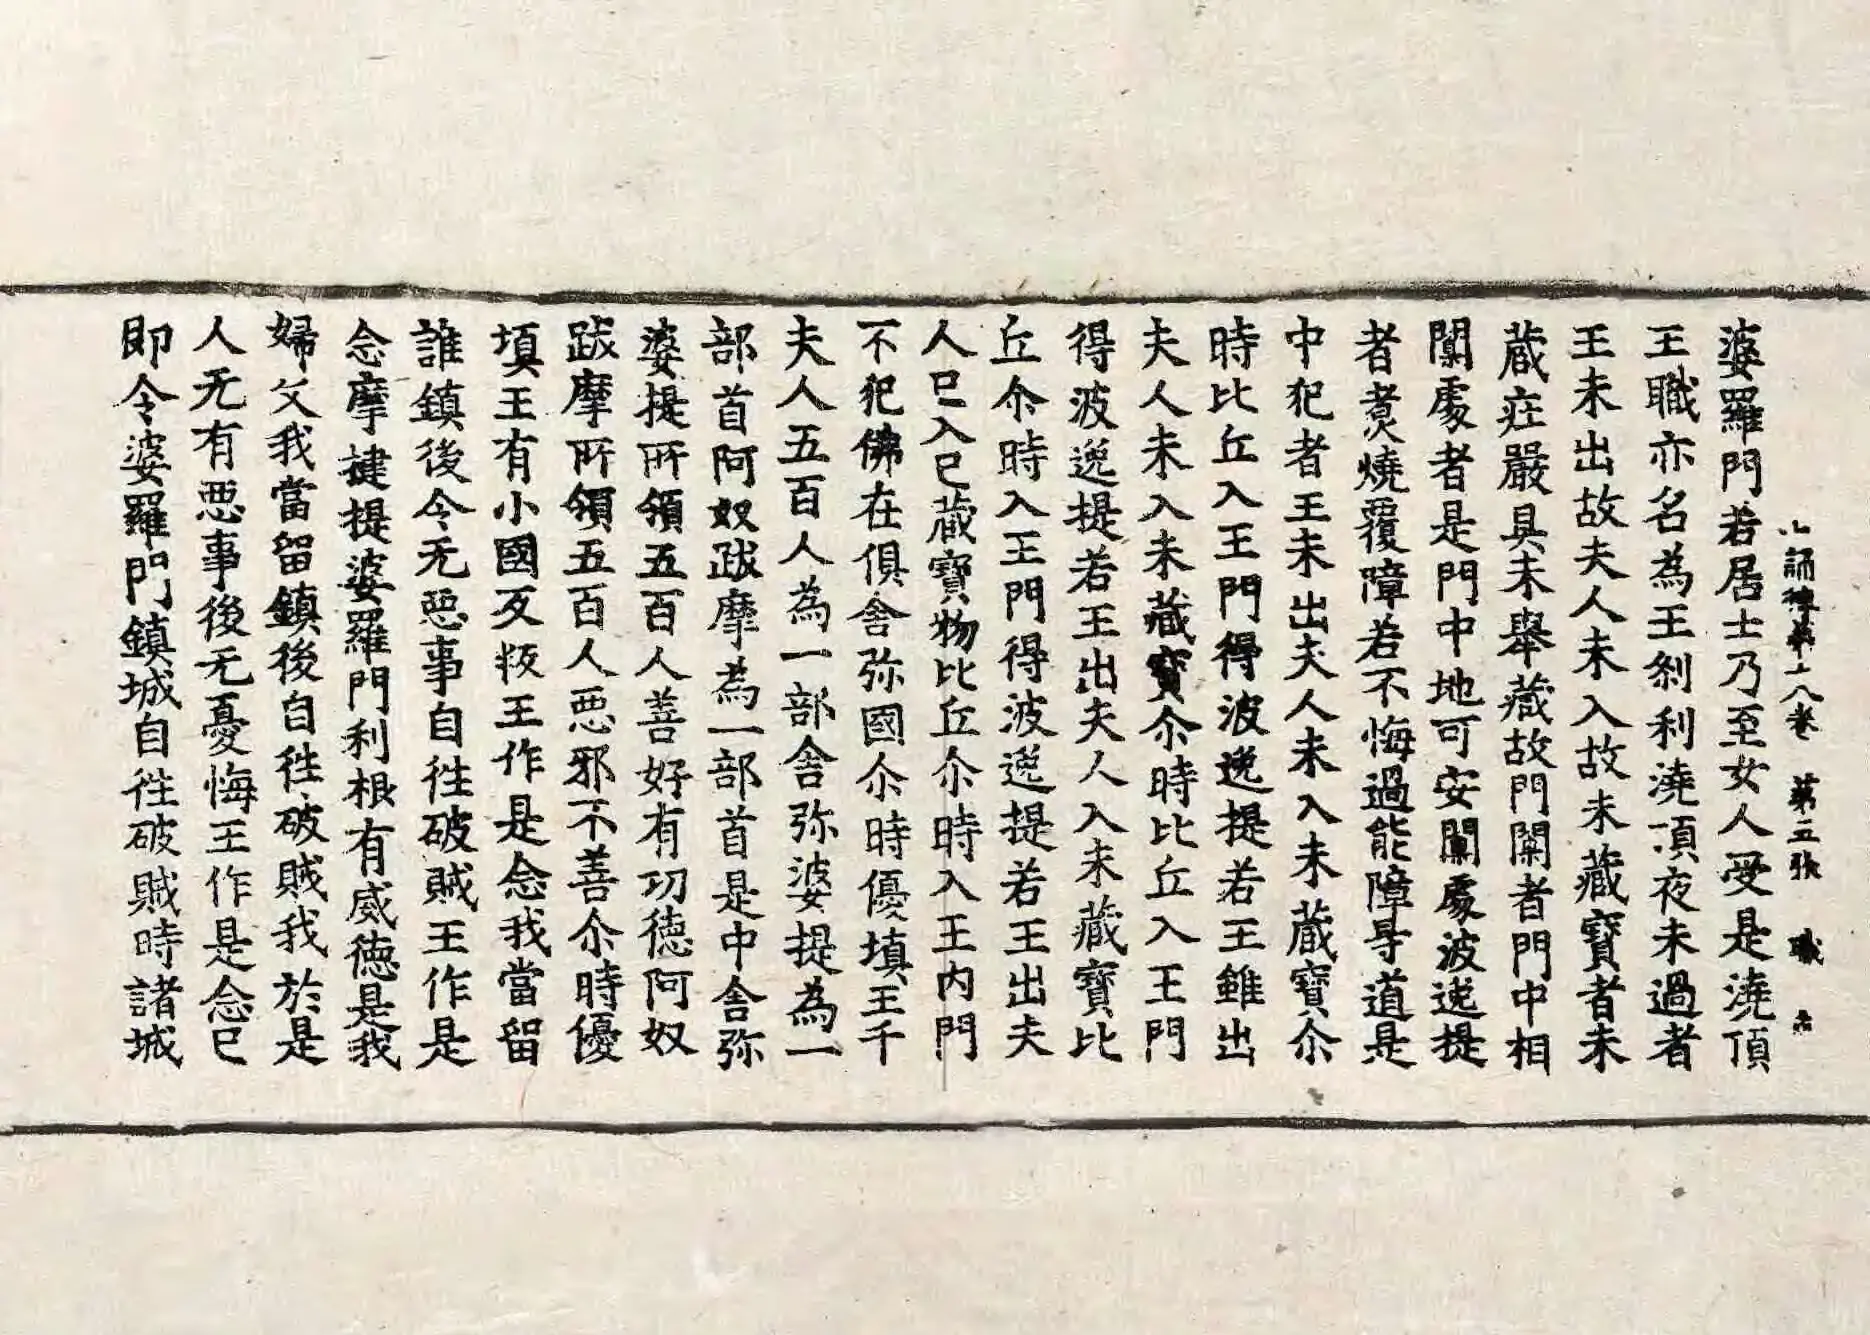 誦律第十八卷 第五張 職
婆羅門若居士乃至女人受是澆頂
王職亦名為王剎利澆頂夜未過者
王未出故夫人未入故未藏寶者未
蔵疘嚴具未舉藏故門閫者門中相
閫處者是門中地可安閫處波逸提
者煑燒覆障若不悔過能障㝵道是
中犯者王未出夫人未入未蔵寶尒
時比丘入王門得波逸提若王雖出
夫人未入未藏寳尒時比丘入王門
得波逸提若王出夫人入未藏寶比
丘尒時入王門得波逸提若王出夫
人已入已藏寶物比丘尒時入王内門
不犯佛在俱舍弥國尒時優填王千
夫人五百人為一部舍弥婆提為一
部首阿奴跋摩為一部首是中舍弥
婆提所領五百人善好有功德阿奴
跋摩所領五百人惡邪不善尒時優
填王有小國反叛王作是念我當留
誰鎮後令无惡事自往破賊王作是
念摩揵提婆羅門利根有威德是我
婦父我當留鎮後自往破賊我於是
人无有惡事後无憂悔王作是念已
即令婆羅門鎮城自往破賊時諸城